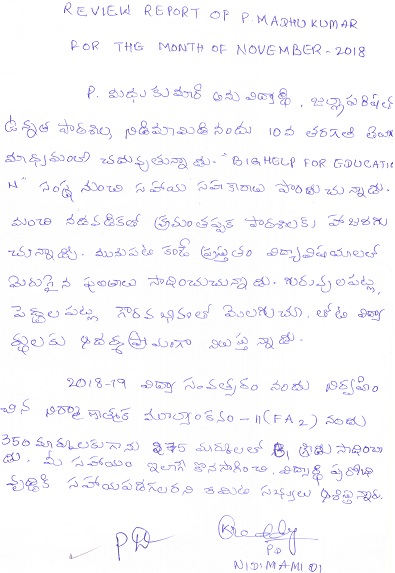 REVIEW REPORT OF P. MADHU KUMAR
FOR THE MONTH OF NOVEMBER - 2018
P. మధు కుమార్ అను విద్యార్థి, జిల్లా పరిషత్
ఉన్నత పాఠశాల, నిడిమామిడి నందు 10వ తరగతి తెలుగు
మాధ్యమంలో చదువుతున్నాడు. "BIG HELP FOR EDUCATIO
N" సంస్థ నుంచి సహాయ సహకారాలు పొందుచున్నాడు.
మంచి నడవడికతో క్రమంతప్పక పాఠశాలకు హాజరగు
చున్నాడు. మునుపటి కంటే ప్రస్తుతం విద్యావిషయాలలో
మెరుగైన ఫలితాలు సాధించుచున్నాడు. గురువులపట్ల,
పెద్దల పట్ల గౌరవ భావంతో మెలగుచూ, తోటి విద్యా
ర్థులకు ఆదర్శప్రాయంగా నిలుస్తున్నాడు.
2018-19 విద్యా సంవత్సరం నందు నిర్వహిం
చిన నిర్మాణాత్మక మూల్యాంకనం - II (FA2) నందు
350 మార్కులకుగాను మార్కులతో B1 గ్రేడు సాధించా
డు. మీ సహాయం ఇలాగే కొనసాగించి, విద్యార్థి పురోభి
వృద్ధికి సహాయపడగలరని కమిటి సభ్యులు ఆశిస్తున్నారు.
PD
NIDIMAMIDI